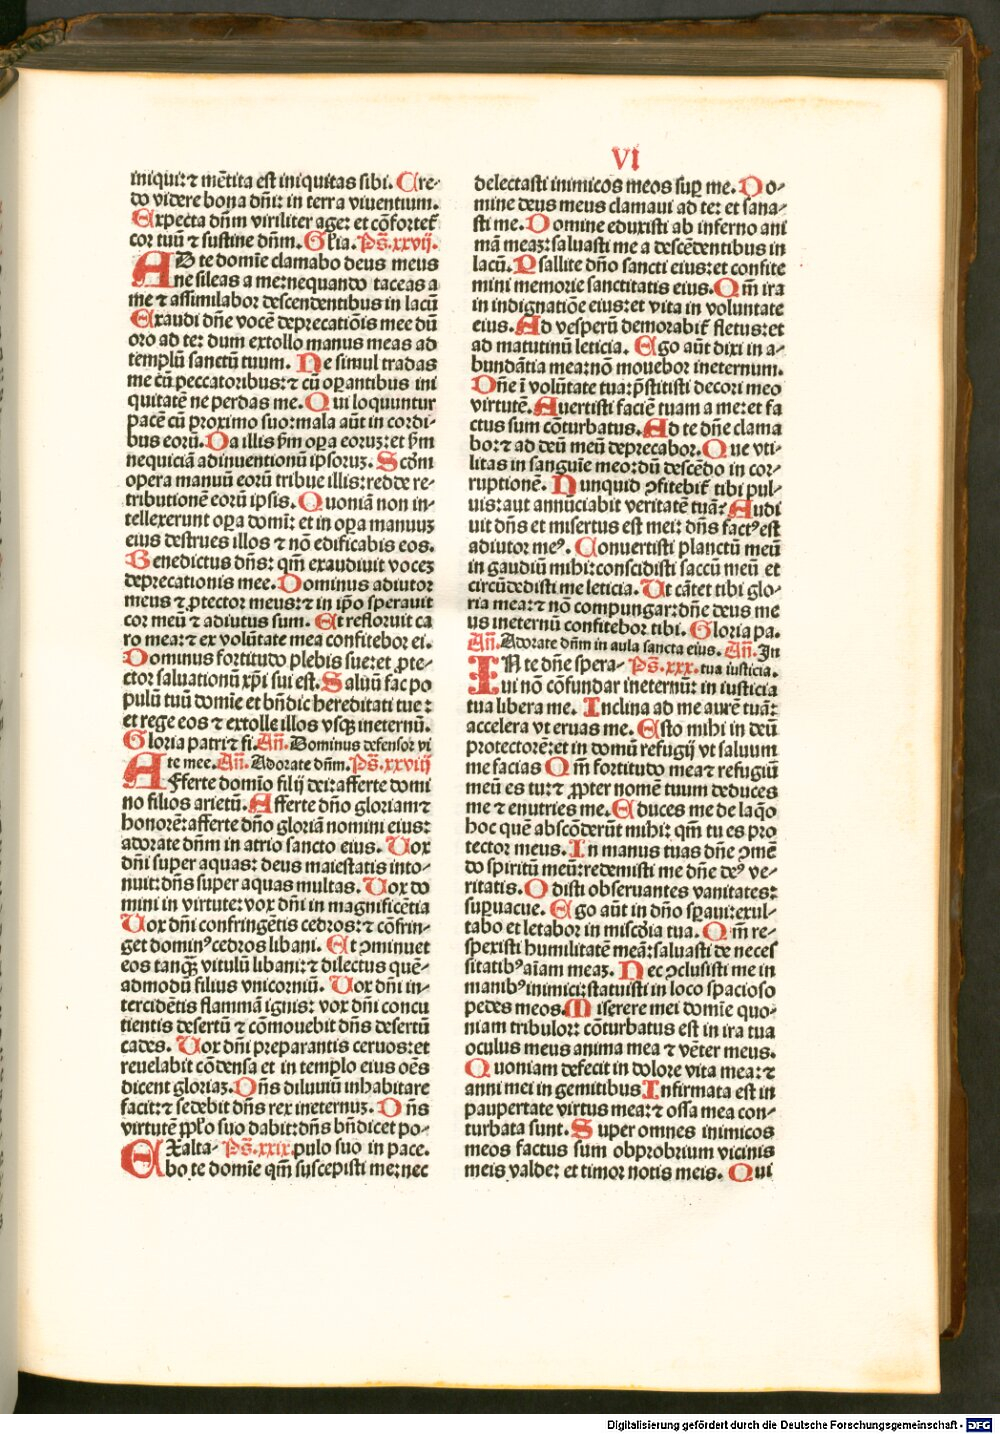 VI
iniqui: ⁊ mẽtita est iniquitas sibi. Cre-
do videre bona dñi: in terra viuentium.
Expecta dñm viriliter age: et cõfortet̃
cor tuũ ⁊ sustine dñm. Gl̃ia. Ps̃. xxvij.
AD te domĩe clamabo deus meus
ne sileas a me: nequando taceas a
me ⁊ assimilabor descendentibus in lacũ
Exaudi dñe vocẽ deprecatiõis mee dũ
oro ad te: dum extollo manus meas ad
templũ sanctũ tuum. Ne simul tradas
me cũ peccatoribus: ⁊ cũ oꝑantibus ini
quitatẽ ne perdas me. Qui loquuntur
pacẽ cũ proximo suo: mala aũt in cordi-
bus eorũ. Da illis ẜm oꝑa eoruꝫ: et ẜm
nequiciã adinuentionũ ipsoruꝫ. Scd̃m
opera manuũ eorũ tribue illis: redde re-
tributionẽ eorũ ipsis. Quoniã non in-
tellexerunt oꝑa domĩ: et in oꝑa manuuꝫ
eius destrues illos ⁊ nõ edificabis eos.
Benedictus dñs: qm̃ exaudiuit voceꝫ
deprecationis mee. Dominus adiutor
meus ⁊ ꝓtector meus: ⁊ in ip̃o sperauit
cor meũ ⁊ adiutus sum. Et refloruit ca
ro mea: ⁊ ex volũtate mea confitebor ei.
Dominus fortitudo plebis sue: et ꝓte-
ctor saluationũ xp̃i sui est. Saluũ fac po
pulũ tuũ domĩe et bñdic hereditati tue:
et rege eos ⁊ extolle illos vsqꝫ ineternũ.
Gloria patri ⁊ fi. Añ. Dominus defensor vi
te mee. Añ. Adorate dñm. Ps̃. xxviij
AFferte domĩo filij dei: afferte domi
no filios arietũ. Afferte dño gloriam ⁊
honorẽ: afferte dño gloriã nomini eius:
adorate dñm in atrio sancto eius. Uox
dñi super aquas: deus maiestatis into-
nuit: dñs super aquas multas. Uox do
mini in virtute: vox dñi in magnificẽtia
Uox dñi confringẽtis cedros: ⁊ cõfrin-
get dominꝰ cedros libani. Et ꝯminuet
eos tanqꝫ̃ vitulũ libani: ⁊ dilectus quẽ-
admodũ filius vnicorniũ. Uox dñi in-
tercidẽtis flammã ignis: vox dñi concu
tientis desertũ ⁊ cõmouebit dñs desertũ
cades. Uox dñi preparantis ceruos: et
reuelabit cõdensa et in templo eius oẽs
dicent gloriaꝫ. Dñs diluuiũ inhabitare
facit: ⁊ sedebit dñs rex ineternuꝫ. Dñs
virtutẽ pp̃lo suo dabit: dñs bñdicet po-
EXalta- Ps̃. xxix. pulo suo in pace.
bo te domĩe qm̃ suscepisti me: nec
delectasti inimicos meos suꝑ me. Do-
mine deus meus clamaui ad te: et sana-
sti me. Domine eduxisti ab inferno ani
mã meaꝫ: saluasti me a descẽdentibus in
lacũ. Psallite dño sancti eius: et confite
mini memorie sanctitatis eius. Qm̃ ira
in indignatiõe eius: et vita in voluntate
eius. Ad vesperũ demorabit̃ fletus: et
ad matutinũ leticia. Ego aũt dixi in a-
bundãtia mea: nõ mouebor ineternum.
Dñe ĩ volũtate tua: p̃stitisti decori meo
virtutẽ. Auertisti faciẽ tuam a me: et fa
ctus sum cõturbatus. Ad te dñe clama
bo: ⁊ ad deũ meũ deprecabor. Que vti-
litas in sanguĩe meo: dũ descẽdo in cor-
ruptionẽ. Nunquid ꝯfitebit̃ tibi pul-
uis: aut annũciabit veritatẽ tuã? Audi
uit dñs et misertus est mei: dñs factꝰ est
adiutor meꝰ. Conuertisti planctũ meũ
in gaudiũ mihi: conscidisti saccũ meũ et
circũdedisti me leticia. Ut cãtet tibi glo-
ria mea: ⁊ nõ compungar: dñe deus me
us ineternũ confitebor tibi. Gloria pa.
Añ. Adorate dñm in aula sancta eius. Añ. In
IN te dñe spera- Ps̃. xxx. tua iusticia.
ui nõ cõfundar ineternũ: in iusticia
tua libera me. Inclina ad me aurẽ tuã:
accelera vt eruas me. Esto mihi in deũ
protectorẽ: et in domũ refugij vt saluum
me facias Qm̃ fortitudo mea ⁊ refugiũ
meũ es tu: ⁊ ꝓpter nomẽ tuum deduces
me ⁊ enutries me. Educes me de laq̃o
hoc quẽ abscõderũt mihi: qm̃ tu es pro
tector meus. In manus tuas dñe ꝯmẽ
do spiritũ meũ: redemisti me dñe deꝰ ve-
ritatis. Odisti obseruantes vanitates:
suꝑuacue. Ego aũt in dño sꝑaui: exul-
tabo et letabor in miscd̃ia tua. Qm̃ re-
spexisti humilitatẽ meã: saluasti de neces
sitatibꝰ aĩam meaꝫ. Nec ꝯclusisti me in
manibꝰ inimici: statuisti in loco spacioso
pedes meos. Miserere mei domĩe quo-
niam tribulor: cõturbatus est in ira tua
oculus meus anima mea ⁊ vẽter meus.
Quoniam defecit in dolore vita mea: ⁊
anni mei in gemitibus Infirmata est in
paupertate virtus mea: ⁊ ossa mea con-
turbata sunt. Super omnes inimicos
meos factus sum obprobrium vicinis
meis valde: et timor notis meis. Qui
Digitalisierung gefördert durch die Deutsche Forschungsgemeinschaft - DFG